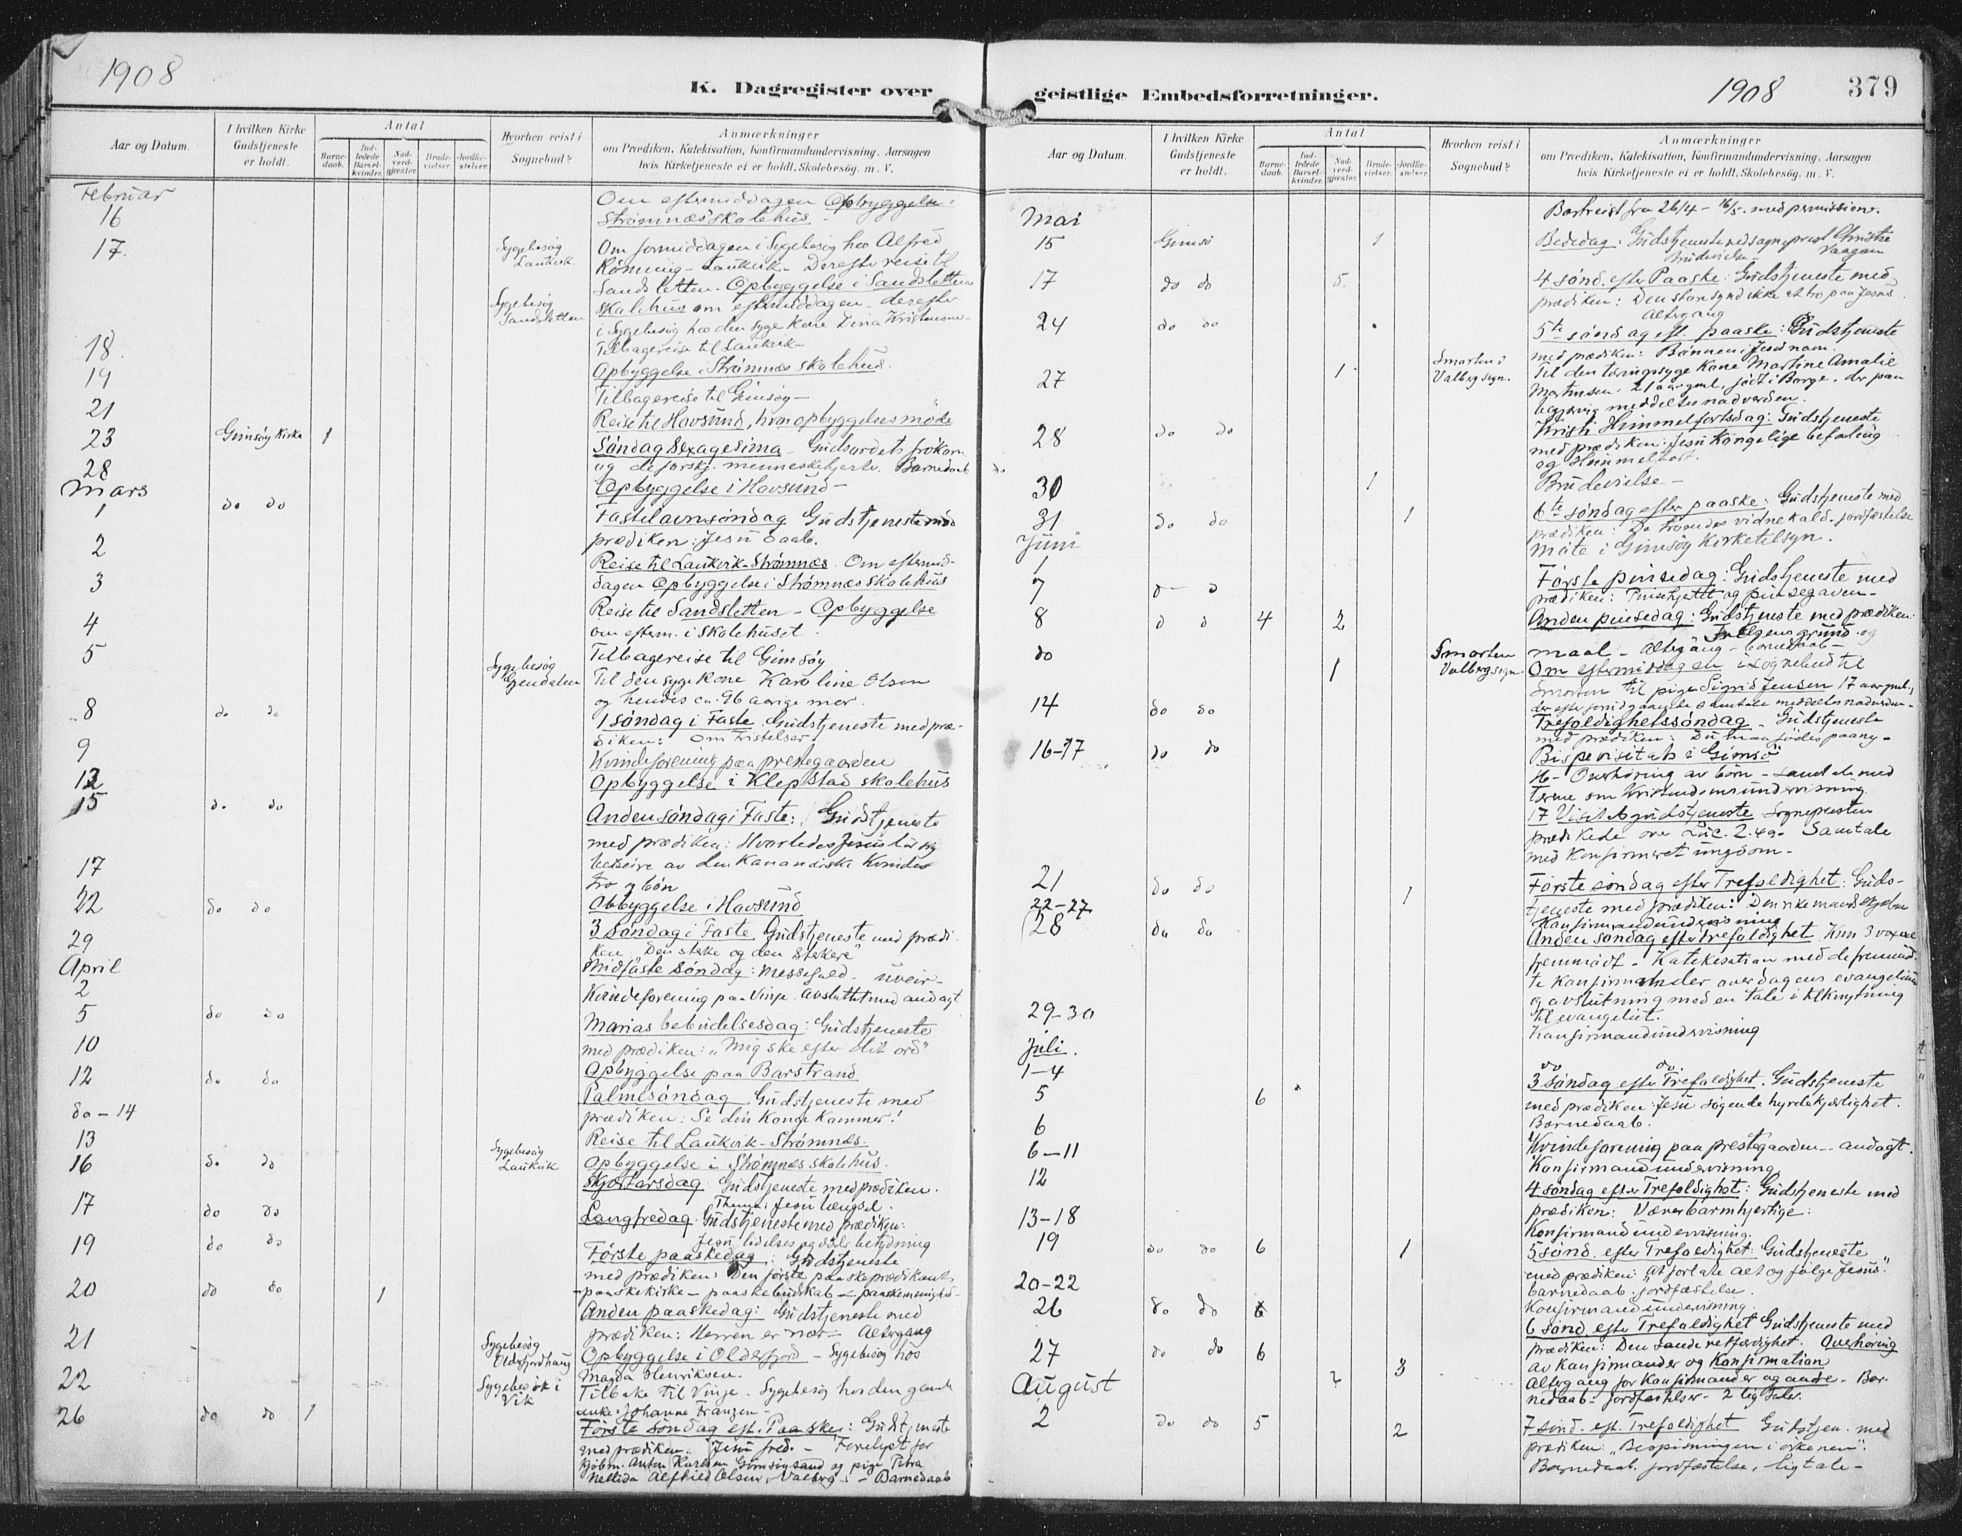 1908
K. Dagregister over
Aar og Datum.
I hvilken Kirke Gudstjeneste er holdt.
Antal
Barne-daab.
Ind-ledede Barsel-kvinder.
Nad-verd-gjester.
Brude-vielser.
Jordfæ-stelser.
Hvorhen reist i Sognebud?
Anmærkninger
om Prædiken, Katekisation, Konfirmandundervisning, Aarsagen
hvis Kirketjeneste ei er holdt, Skolebesøg. m. V.
Februar
16 Om eftermiddagen Opbyggelse i
Strømnæs skolehus
17. Sygebesøg Laukvik. Om formiddagen i Sygebesøg hos Alfred
Rönning - Laukvik - Derefter reise til
Sandsletten. Opbyggelse i Sandsletten
Sygebesøg Sandsletten skolehus om eftermiddagen - derefter
i Sygebesøg hos den syge kone Lina Kristensen
18. Tilbagereise til Laukvik
Opbyggelse Strømnæs skolehus.
19 Tilbagereise til Gimsøy -
21 Reise til Havsund, hvor opbyggelsesmøde
23 Gimsøy Kirke 1 Søndag Sexagesima - Gudsordets frökorn
og de forskj. menneskehjerter. Barnedaab
28 Opbyggelse i Havsund -
Mars
1 do do Fastelavnsøndag Gudstjeneste med
prædiken: Jesu Daab.
2 Reise til Laukvik - Strømnæs. Om eftermid-
dagen Opbyggelse i Strømnæs skolehus
3 Reise til Sandsletten - Opbyggelse
om efterm. i skolehuset.
4 Tilbagereise til Gimsøy
5 Sygebesøg Til den syge kone Karoline Olsen
og hendes ca. 96 aarige mor.
8 do do 1 Søndag i Faste Gudstjeneste med præ-
diken: Om Fristelser
9 Kvindeforening paa prestegaarden
12 Opbyggelse i Klepstad skolehus
15 do do Anden søndag i Faste: Gudstjeneste
med prædiken: Hvorledes Jesus lar sig
beseire av den Kananæiske Kvindes
tro og bön
17 Opbyggelse i Havsund
22 do do 3 Søndag i Faste Gudstjeneste med prædi-
ken "Den sterke og den sterkere"
29 Midfaste Søndag: Messefald - uveir -
April
2 Kvindeforening paa Vinje. Avsluttet med andagt
5 do do Marias bebudelsesdag: Gudstjeneste
med prædiken: "Mig ske efter dit ord"
10 Opbyggelse paa Barstrand
12 do do Palmesøndag Gudstjeneste med
prædiken: Se din Konge kommer!
do - 14 Reise til Laukvik - Strømnæs
13 Sygebesøg Laukvik Opbyggelse i Strømnæs skolehus.
16 do do Skjærtorsdag: Gudstjeneste med prædiken.
Thema: Jesu længsel.
17 do do Langfredag. Gudstjeneste med prædiken:
Jesu lidelses og døds betydning
19 do do Første paaskedag: Gudstjeneste
med prædiken: Den første paaskeprædikent,
- paaskekirke - paaskebudskab - paaskemenighed
20 do do 1 Anden paaskedag: Gudstjeneste med
prædiken: Herren er nær - Altergang
21 Sygebesøg Oldefjordhaug Opbyggelse i Oldefjord - Sygebesøg hos
Magda Henriksen.
22 Sygebesøk i Vik Tilbake til Vinje. Sygebesøg hos den gamle
enke Johanne Franzen -
26 do do 1 Første søndag eft. Paaske: Gudstjeneste
med prædiken: Jesu fred. - Forelyst for
Anton Karlsen Gimsøysand og pige Petra
Nellida Alfhild Olsen, Valberg - Barnedaab

geistlige Embedsforretninger.
1908
379
Aar og Datum.
I hvilken Kirke Gudstjeneste er holdt.
Antal
Barne-daab.
Ind-ledede Barsel-kvinder.
Nad-verd-gjester.
Brude-vielser.
Jordfæ-stelser.
Hvorhen reist i Sognebud?
Anmærkninger
om Prædiken, Katekisation, Konfirmandundervisning, Aarsagen
hvis Kirketjeneste ei er holdt, Skolebesøg. m. V.
Bortreist fra 26/4 - 16/5. med permission.
Mai
15 Gimsö 1 Bededag: Gudstjeneste ved sogneprest Christie
Vaagan
Brudevielse -
17 do do 5. 4 sönd. efter Paaske: Gudstjeneste med
prædiken: Den store synd ikke at tro paa Jesus.
Altergang
24 do do 5te søndag eft. paaske: Gudstjeneste
med prædiken: Bönnen i Jesu navn.
27 1 Smorten i Valberg sogn. Til den tæringssyge kone Martine Amalie
21 aar gml, født i Borge, der paa
meddeltes nadverden.
28 do do Kristi Himmelfartsdag: Gudstjeneste
med prædiken: Jesu kongelige befaling
og Himmelfart.
30 1 Brudevielse -
31 do do 1 6te søndag efter paaske: Gudstjeneste med
prædiken: De troendes vidnekald - jordfæstelse
Juni
1 Möte i Gimsøy Kirketilsyn.
7 do do Første pinsedag: Gudstjeneste med
prædiken: og pinsegaven -
8 do do 4 2 Anden pinsedag: Gudstjeneste med prædiken:
Frelsens grund og
maal - Altergang - barnedaab -
do 1 Smorten Valberg sogn Om eftermiddagen i sognebud til
Smorten til pige Sigrid Jensen 17 aar gml.,
meddeltes nadverden -
14 do do Trefoldighetssøndag - Gudstjeneste
med prædiken: Du maa fødes paany -
16-17 do do Bispevisitats i Gimsö
16 - Overhöring av börn - samtale med
dem om Kristendomsundervisning.
17 Visitatsgudstjeneste Sognepresten
prædikede over Luc. 2.49 - Samtale
med konfirmeret ungdom -
21 do do 1 Første søndag efter Trefoldighet: Guds-
tjeneste med prædiken: Den rike mands skjebne
22-27 Konfirmandundervisning
28 do do Anden søndag efter Trefoldighet. Kun 3 voxne
fremmødt - Katekisation med de fremmød-
te konfirmander over dagens evangelium
og avslutning med en tale i tilknytning
til evangeliet.
29-30 Konfirmandundervisning
Juli.
1-4 do do.
5 6 3 søndag efter Trefoldighet. Gudstjeneste
med prædiken: Jesu søgende hyrdekjærlighet.
Barnedaab.
6 Kvindeforening paa prestegaarden - andagt.
6-11 Konfirmandundervisning
12 4 søndag efter Trefoldighet: Gudstjeneste med
prædiken: Vær barmhjertige:
13-18 Konfirmandundervisning.
19 do do 6 1 5 sönd. efter Trefoldighet: Gudstjeneste
med prædiken: "At forlate alt og følge Jesus".
barnedaab. jordfæstelse.
20-22 Konfirmandundervisning.
26 do do 6 6 sönd. efter Trefoldighet Gudstjeneste med
prædiken: Den sande retfærdighet. Overhöring
av konfirmander og Konfirmation
27 do do 6 2 3 Altergang for konfirmander og andre - Bar-
nedaab - jordfæstelser - 2 ligtaler.
August
2 do do 5 2 7 sönd. eft. Trefoldighet Gudstjen. med
prædiken: "Bespisningen i örkenen".
Barnedaab. jordfæstelse, ligtale -